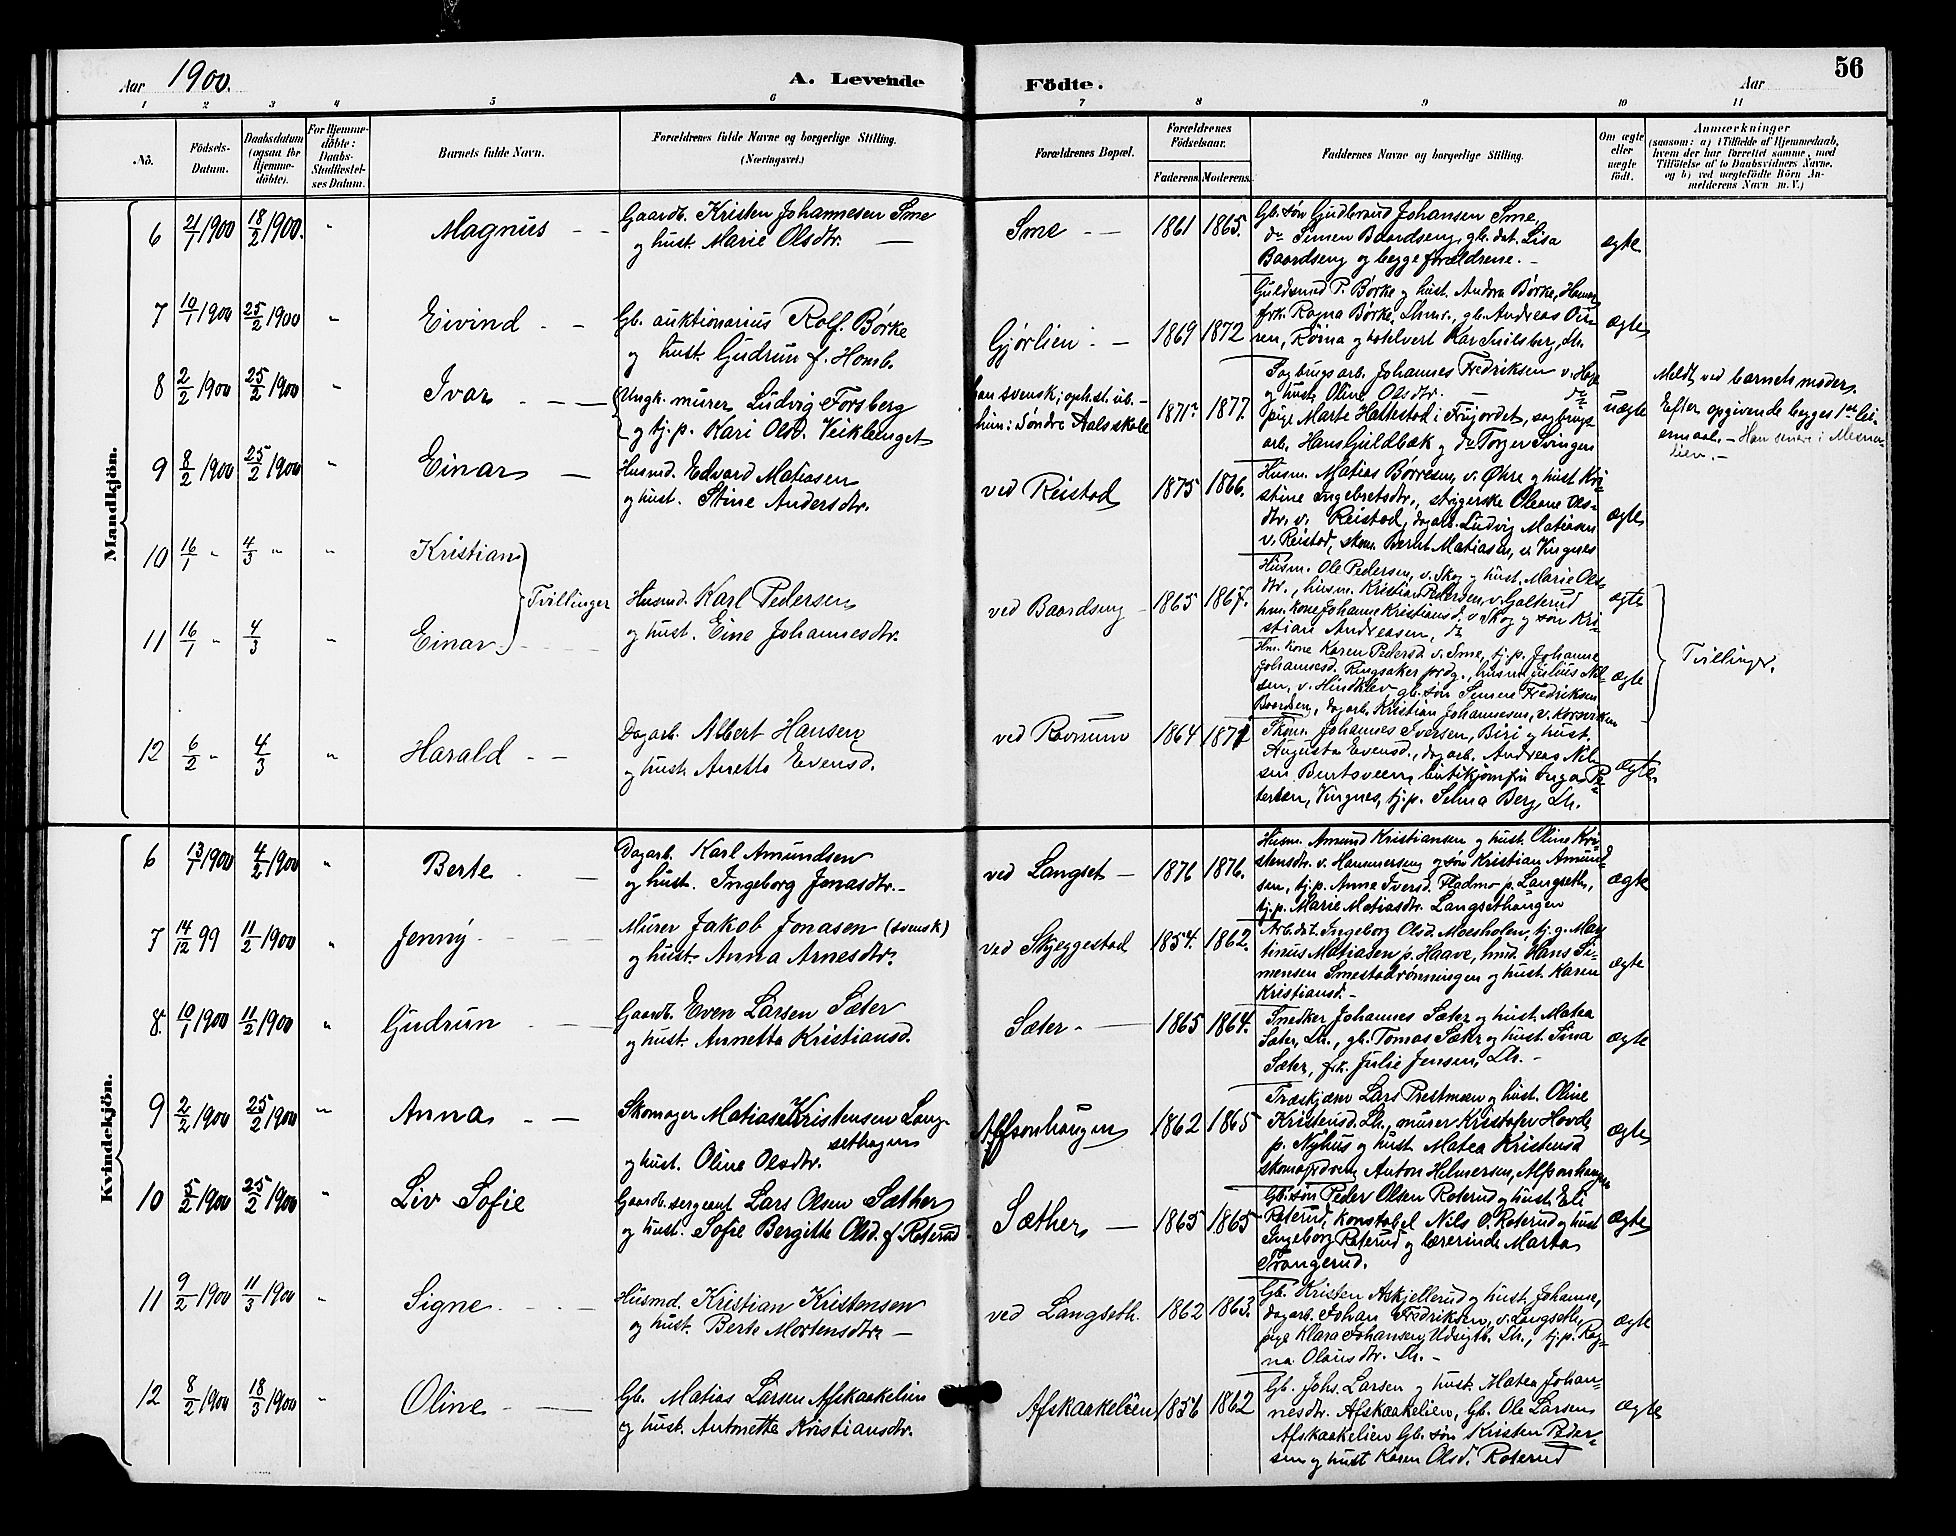 Aar 1900.
A. Levende Födte.
Aar
56
1 2 3 4 5 6 7 8 9 10 11
No.
Födsels-Datum.
Daabsdatum (ogsaa for Hjemmedöbte).
For Hjemmedöbte: Daabs-Stadfæstelses Datum.
Barnets fulde Navn.
Forældrenes fulde Navne og borgerlige Stilling. (Næringsvei.)
Forældrenes Bopæl.
Forældrenes Födselsaar.
Faderens. Moderens.
Faddernes Navne og borgerlige Stilling.
Om ægte eller uægte födt.
Anmærkninger
(saasom: a) i Tilfælde af Hjemmedaab,
hvem der har forrettet samme, med
Tilföielse af to Daabsvidners Navne,
og b) ved uægtefödte Börn An-
melderens Navn m. V.)
Mandkjön.
6 21/1 1900 18/2 1900. " Magnus
Gaardb. Kristen Johannesen Sme
og hust. Marie Olsdtr.
Sme 1861 1865.
Gb. søn Gudbrand Johansen Sme,
do Simen Baardseng, gb. dat. Lisa
Baardseng og begge forældrene.
ægte
7 10/1 1900 25/2 1900 " Eivind
Gb. auktionarius Rolf Børke
og hust. Gudrun f. Homb.
Gjørlien 1869 1872
Guldsmed P. Børke og hust. Andrea Børke, Hamar
frk. Ragna Børke, Lhmr., gb. Andreas
ægte
8 2/2 1900 25/2 1900 " Ivar
Ungk. murer Ludvig Forsberg
og tj.p. Kari Olsd. Veiklenget
han svensk; opholdt ub.
hun: Søndre Aalsskole
1871? 1877.
Sagbrugsarb. Johannes Fredriksen v. Hage
og hust. Oline Olsdtr.
pige Marte Hattestad i Frujordet, sagbrugs
arb. Hans Guldbak og do Torger Svingen
uægte
Meldt ved barnets moder.
Efter opgivende begges 1ste lei-
ermaal. - Han senere i Mesna-
lien. -
9 8/2 1900 25/2 1900 " Einar
Husmd. Edvard Matiasen
og hust. Stine Andersdtr.
ved Reistad 1875 1866.
Husm. Matias Børresen, v. Øhre og hust. Kri-
stine Ingebretsdtr., strygerske Oleane Ols-
dtr. v. Reistad, dagarb. Ludvig Matiasen
v. Reistad, skom. Bernt Matiasen, v. Vingnes
ægte
10 16/1 " 4/3 " " Kristian
11 16/1 " 4/3 " Einar
Tvillinger
Husmd. Karl Pedersen
og hust. Eine Johannesdtr.
ved Baardseng 1865 1867.
Husm. Ole Pedersen, v. Skog og hust. Marie Ols-
dtr., husm. Kristian Pedersen, v. Galterud
hm. kone Johanne Kristiansd. v. Skog og søn Kri-
stian Andreasen, do
ægte
Hm. kone Karen Pedersd. v. Sme, tj.p. Johanne
Johannesd. Ringsaker prdg., husm. Julius Nil-
sen, v. Hindklev, gb. søn Simen Fredriksen
Baardsen, dagarb. Kristian Johannesen, v. Korsviken
ægte
Tvillinger.
12 6/2 " 4/3 " Harald
Dagarb. Albert Hansen
og hust. Anette Evensd.
ved Rovnum 1864 1871
Skom. Johannes Iversen, Biri og hust.
Augusta Evensd., dagarb. Andreas Nil-
sen Burtsveen, butikjomfru Inga Pe-
tersen, Vingnes, tj.p. Selma Berg, Lh.
ægte
Kvindekjön.
6 13/1 1900 4/2 1900 " Berte
Dagarb. Karl Amundsen
og hust. Ingeborg Jonasdtr.
ved Langset 1876 1876.
Husm. Amund Kristiansen og hust. Oline Kri-
stensdtr. v. Hammerseng og søn Kristian Amund-
sen, tj.p. Anne Iversd. Fladmo p. Langseth,
tj.p. Marie Matiasdtr. Langsethaugen
ægte
7 14/12 99 11/2 1900 " Jenny
Murer Jakob Jonasen (svensk)
og hust. Anna Arnesdtr.
ved Skjeggestad 1854. 1862.
Arb.dat. Ingeborg Olsd. Moesholen, tj.g. Mar-
tinus Matiasen p. Haave, hmd. Hans Si-
mensen Smestadrønningen og hust. Karen
Kristiansd. -
ægte
8. 10/1 1900 11/2 1900 " Gudrun
Gaardb. Even Larsen Sæter
og hust. Annetta Kristiansd.
Sæter 1865 1864.
Snedker Johannes Sæter og hust. Matea
Sæter, Lh., gb. Tomas Sæter og hust. Sina
Sæter, frk. Julie Jensen, Lh. -
ægte
9 2/2 1900 25/2 1900 " Anna
Skomager Matias Kristensen Lang-
sethagen
og hust. Oline Olsdtr.
Alfsonhaugen 1862 1865
Træskjærer Lars Prestmoen og hust. Oline
Kristensd. Lh., murer Kristofer Hovde
p. Nyhus og hust. Matea Kristensd
skomagersvend Anton Hilmersen, Alfsonhaugen
ægte
10 5/2 1900 25/2 1900 " Liv Sofie
Gaardb. sergeant Lars Olsen Sæther
og hust. Sofie Bergitte Olsd. f. Roterud
Sæther 1865 1865
Gb. søn Peder Olsen Roterud og hust. Eli
Roterud, konstabel Nils O. Roterud og hust
Ingeborg Roterud og lærerinde Marta
Trangerud.
ægte
11 9/2 1900 11/3 1900 " Signe
Husmd. Kristian Kristensen
og hust. Berte Mortensdtr
ved Langseth. 1862 1863.
Gb. Kristen Askjellerud og hust. Johanne,
dagarb. Johan Fredriksen, v. Langseth,
pige Klara Johansen, Udsigten Lh., tj.p. Rag-
na Olausdtr. Lh. -
ægte
12 8/2 1900 18/3 1900 " Oline
Gb. Matias Larsen Afskaakelien
og hust. Antnette Kristiansdtr.
Afskaakelien 1856 1862
Gb. Johs. Larsen og hust. Matea Johan-
nesdtr. Afskaakelien, Gb. Ole Larsen
Afskaakelien Gb. søn Kristen Peder-
sen og hust Karen Olsd. Roterud
ægte